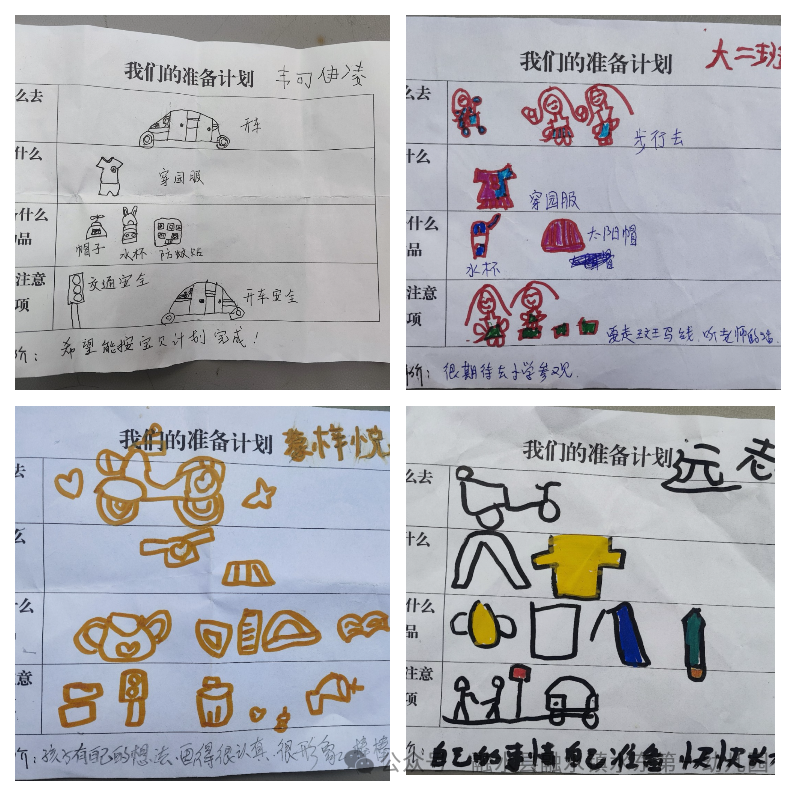 我们的准备计划 韦可伊凌
么去
开车
什么
穿园服
什么
品
帽子 水杯 防蚊贴
注意
项
交通安全
开车安全
价：希望能按宝贝计划完成！
我们的准备计划 大二班
么去
步行去
什么
穿园服
什么
品
水杯 太阳帽
注意
项
要走斑马线，听老师的话
价：很期待去小学参观.
我们的准备计划
去
么
什么
品
意
项
价：孩子有自己的想法，画得很认真，很形象。
我们的准备计划
么去
什么
什么
品
注意
项
自己的事情自己准备 快快长大
公众号